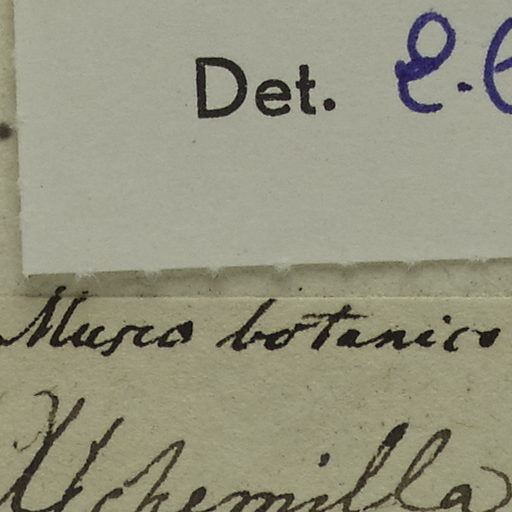 Det. E.
Museo botanico
Alchemilla